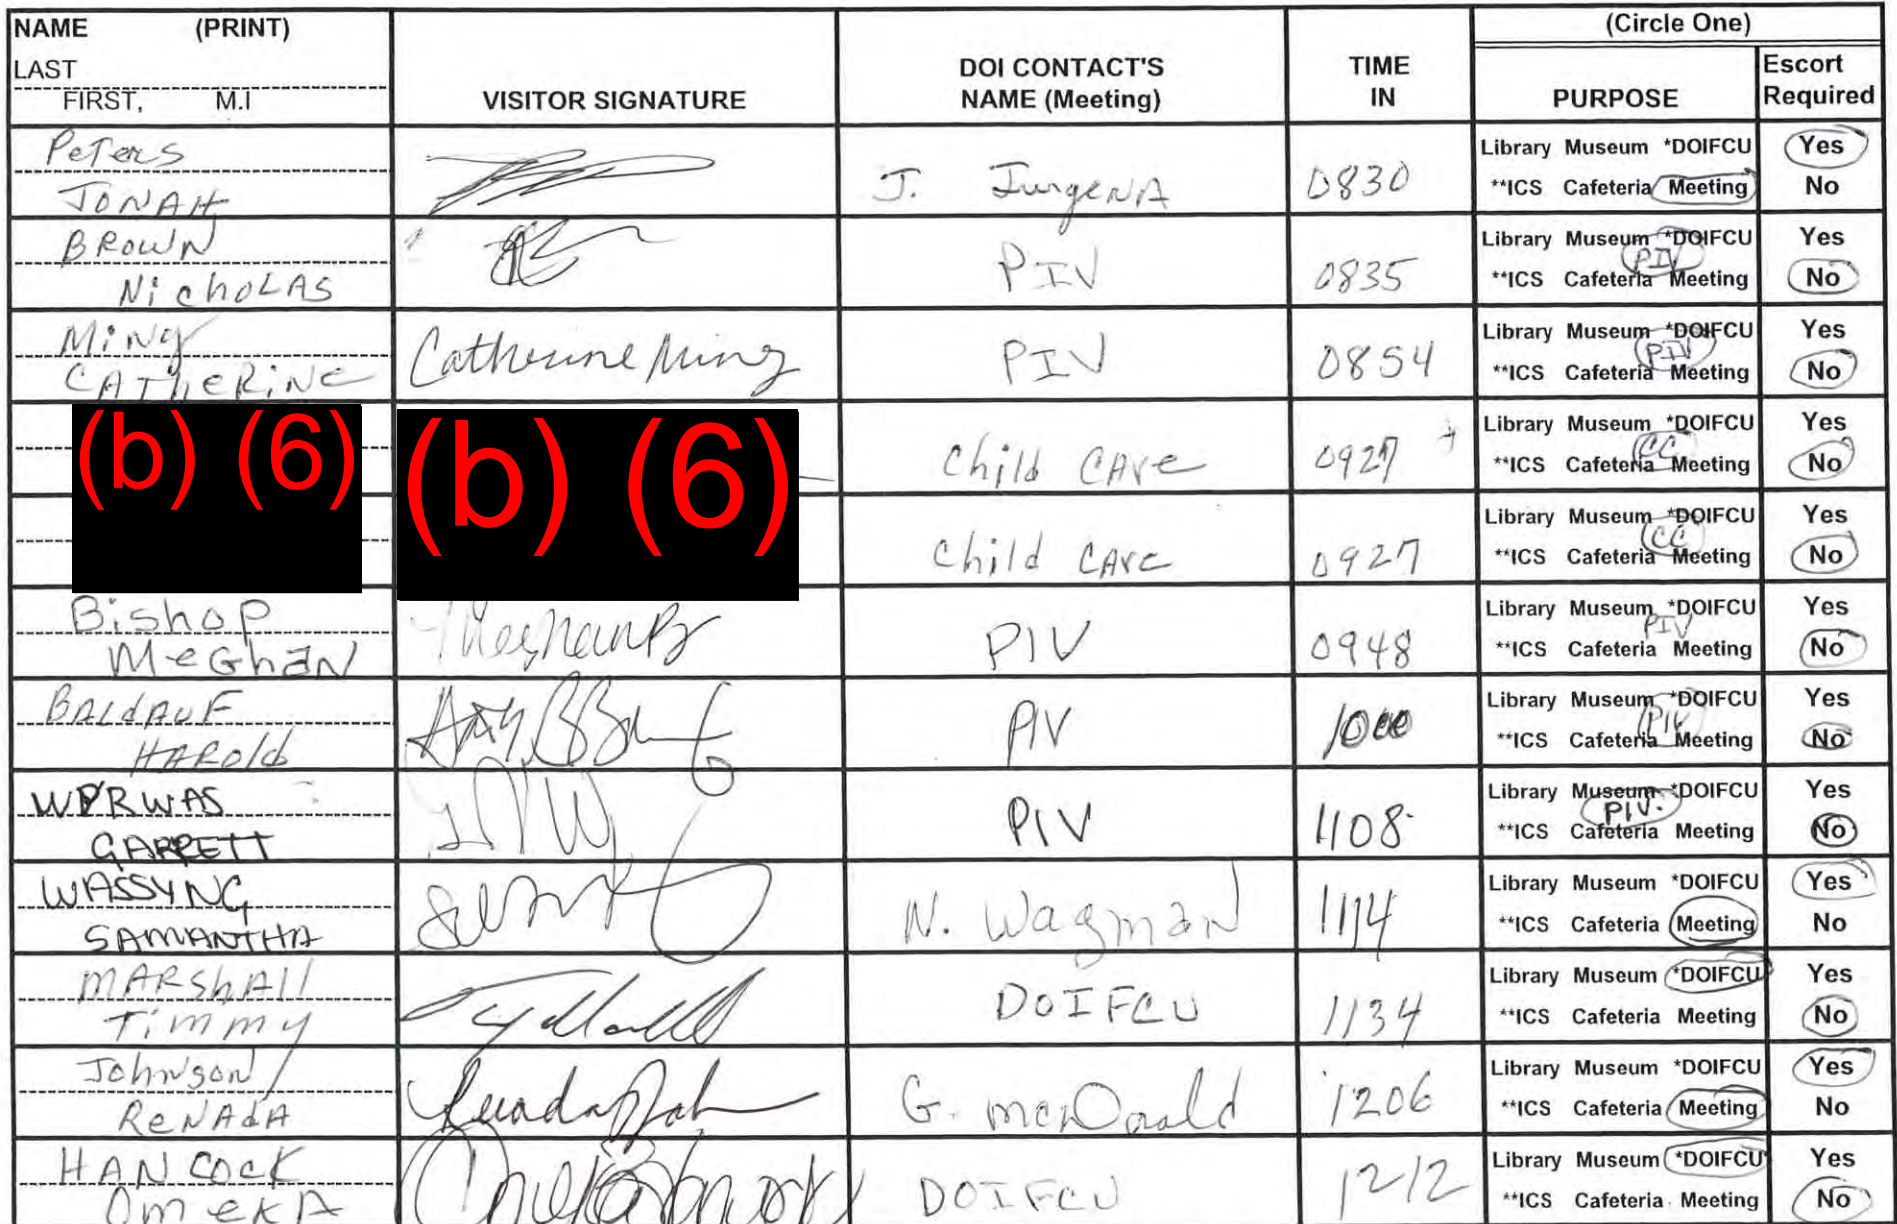 NAME (PRINT)
LAST
FIRST, M.I
VISITOR SIGNATURE
DOI CONTACT'S
NAME (Meeting)
TIME
IN
(Circle One)
PURPOSE
Escort
Required
Peters
JONAH
J. JurgenA
0830
Library Museum *DOIFCU Yes
**ICS Cafeteria Meeting No
BROWN
NicholAS
PIV
0835
Library Museum *DOIFCU Yes
PIV
**ICS Cafeteria Meeting No
Ming
CATHERINE
Catherine Ming
PIV
0854
Library Museum *DOIFCU Yes
PIV
**ICS Cafeteria Meeting No
(b) (6)
(b) (6)
Child CAre
0927
Library Museum *DOIFCU Yes
CC
**ICS Cafeteria Meeting No
Child CAre
0927
Library Museum *DOIFCU Yes
CC
**ICS Cafeteria Meeting No
Bishop
MeGhaN
PIV
0948
Library Museum *DOIFCU Yes
PIV
**ICS Cafeteria Meeting No
BALdAUF
HARold
PIV
1000
Library Museum *DOIFCU Yes
PIV
**ICS Cafeteria Meeting No
GARRETT
PIV
1108
Library Museum *DOIFCU Yes
PIV.
**ICS Cafeteria Meeting No
WASSYNG
SAMANTHA
N. Wagman
1114
Library Museum *DOIFCU Yes
**ICS Cafeteria Meeting No
MARShAll
Timmy
DOIFCU
1134
Library Museum *DOIFCU Yes
**ICS Cafeteria Meeting No
Johnson
ReNAdA
G. McDonald
1206
Library Museum *DOIFCU Yes
**ICS Cafeteria Meeting No
HANCOCK
OmekA
DOIFCU
1212
Library Museum *DOIFCU Yes
**ICS Cafeteria Meeting No